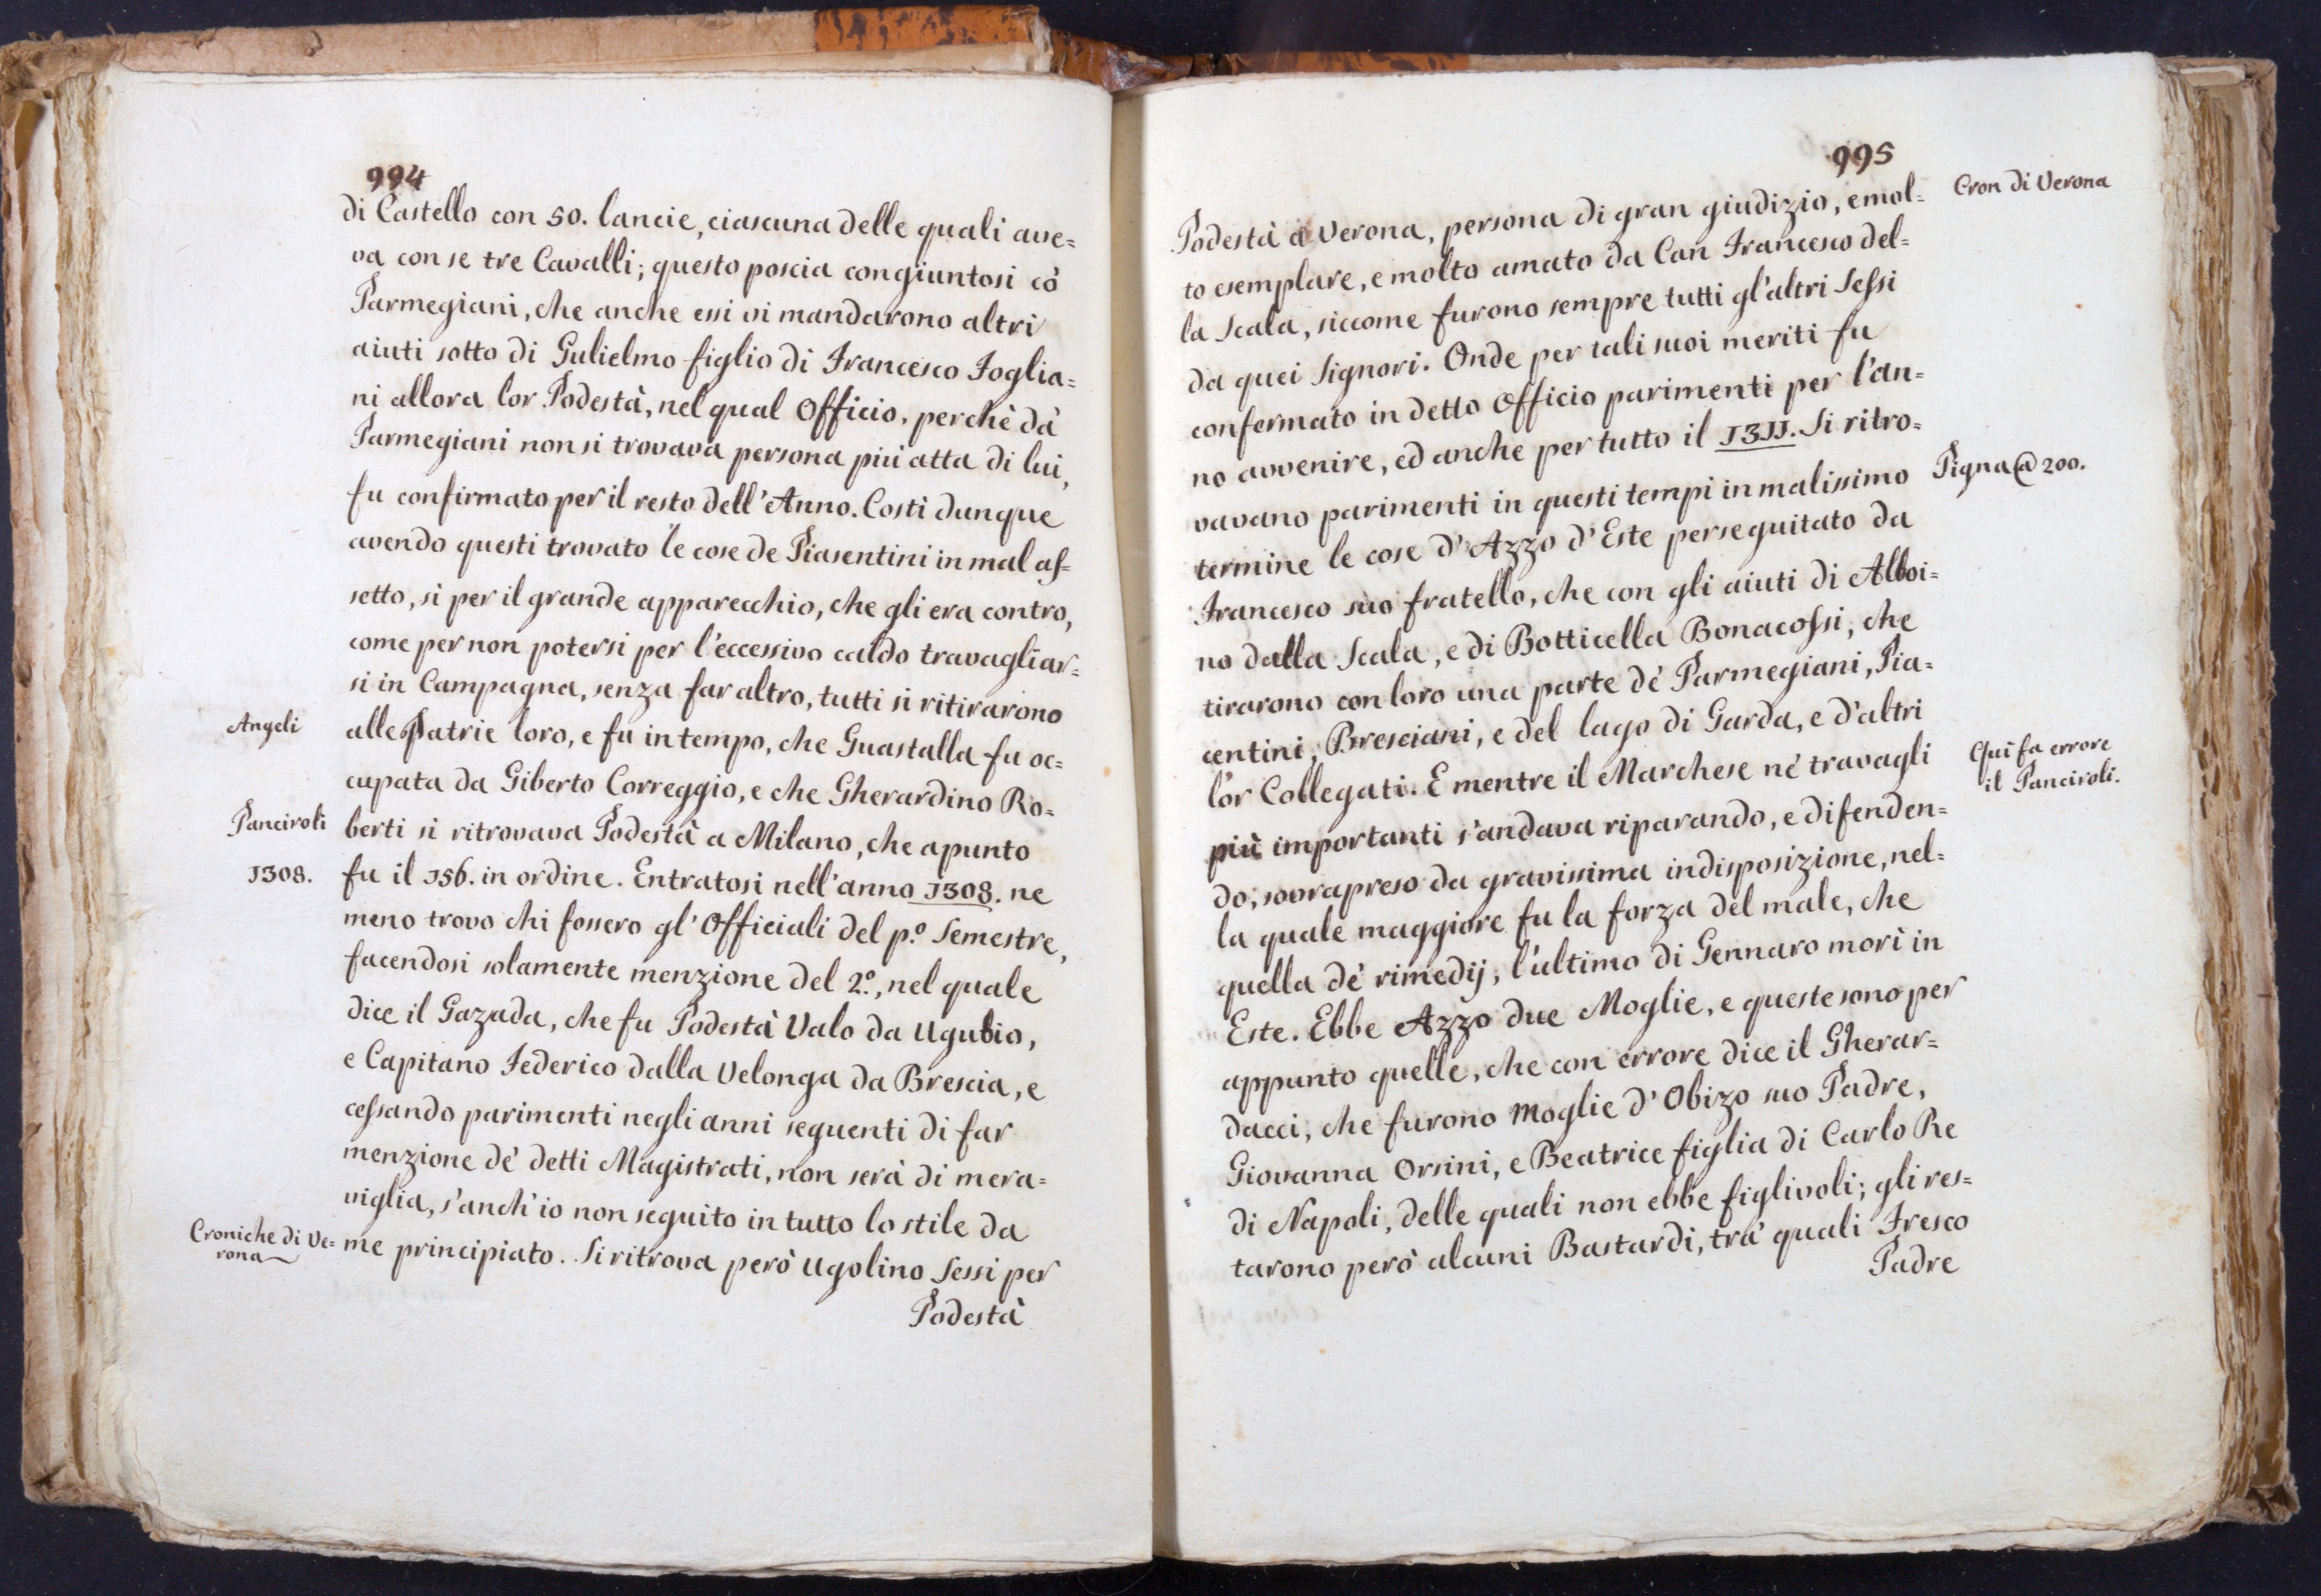 994
di Castello con 50. lancie, ciascuna delle quali ave=
va con se tre Cavalli; questo poscia congiuntosi cò
Parmegiani, che anche essi vi mandarono altri
aiuti sotto di Gulielmo figlio di Francesco Foglia=
ni allora lor Podestà, nel qual Officio, perchè dà
Parmegiani non si trovava persona più atta di lui,
fu confirmato per il resto dell'Anno. Costì dunque
avendo questi trovato le cose de Piasentini in mal as=
setto, sì per il grande apparecchio, che gli era contro,
come per non potersi per l'eccessivo caldo travagliar=
si in Campagna, senza far altro, tutti si ritirarono
Angeli
alle Patrie loro, e fu in tempo, che Guastalla fu oc=
cupata da Giberto Correggio, e che Gherardino Ro=
Panciroli
berti si ritrovava Podestà a Milano, che apunto
1308.
fu il 156. in ordine. Entratosi nell'anno 1308. ne
meno trovo chi fossero gl'Officiali del p.º Semestre,
facendosi solamente menzione del 2.º, nel quale
dice il Gazada, che fu Podestà Valo da Ugubio,
e Capitano Federico dalla Velonga da Brescia, e
cessando parimenti negli anni seguenti di far
menzione dè detti Magistrati, non serà di mera=
viglia, s'anch'io non seguito in tutto lo stile da
Croniche di Ve=
rona
me principiato. Si ritrova però Ugolino Sessi per
Podestà
995
Cron di Verona
Podestà a Verona, persona di gran giudizio, e mol=
to esemplare, e molto amato da Can Francesco del=
la Scala, siccome furono sempre tutti gl'altri Sessi
da quei Signori. Onde per tali suoi meriti fu
confermato in detto Officio parimenti per l'an=
no avvenire, ed anche per tutto il 1311. Si ritro=
Pigna @ 200.
vavano parimenti in questi tempi in malissimo
termine le cose d'Azzo d'Este perseguitato da
Francesco suo fratello, che con gli aiuti di Alboi=
no dalla Scala, e di Botticella Bonacossi, che
tirarono con loro una parte dè Parmegiani, Pia=
centini, Bresciani, e del lago di Garda, e d'altri
lor Collegati. E mentre il Marchese nè travagli
Quì fa errore
il Panciroli.
più importanti s'andava riparando, e difenden=
do, sovrapreso da gravissima indisposizione, nel=
la quale maggiore fu la forza del male, che
quella dè rimedij, l'ultimo di Gennaro morì in
Este. Ebbe Azzo due Moglie, e queste sono per
appunto quelle, che con errore dice il Gherar=
dacci, che furono Moglie d'Obizo suo Padre,
Giovanna Orsini, e Beatrice figlia di Carlo Re
di Napoli, delle quali non ebbe figlivoli; gli res=
tarono però alcuni Bastardi, trà quali Fresco
Padre